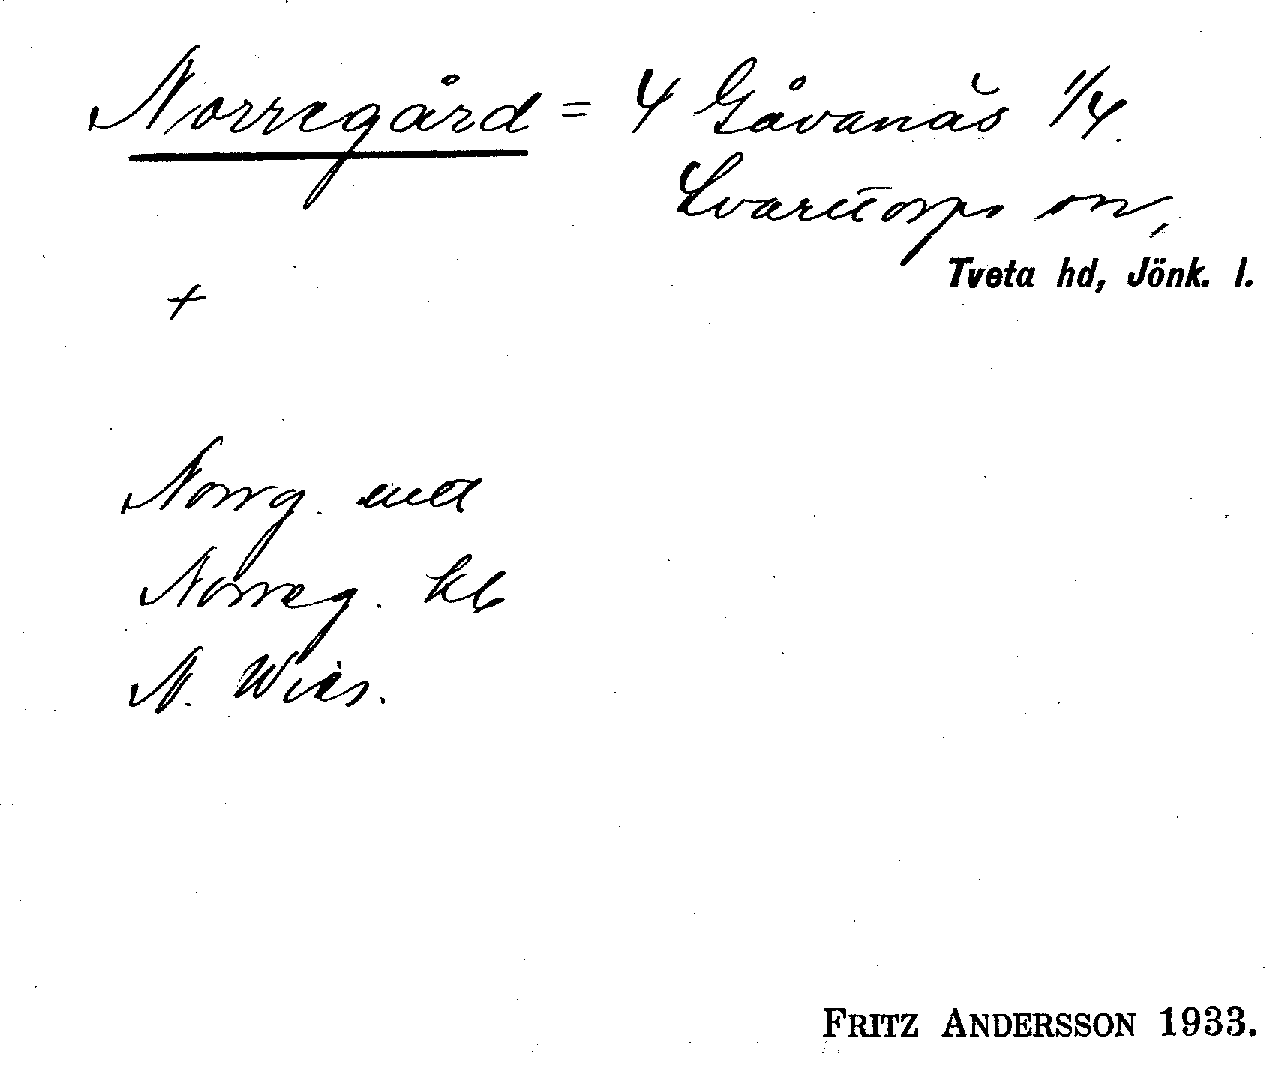 Norregård = 4 Gåvanäs 1/4
Svarttorps sn,
Tveta hd, Jönk. l.
+
Norrg.
Norreg. kb
N. Wies.
FRITZ ANDERSSON 1933.